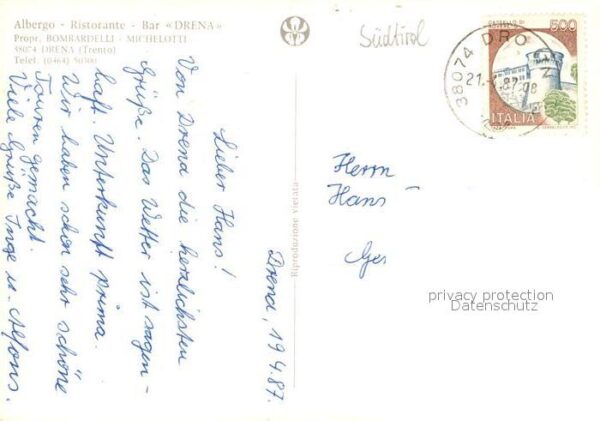 Albergo - Ristorante - Bar «DRENA»
Propr. BOMBARDELLI - MICHELOTTI
38074 DRENA (Trento)
Telef. (0464) 50300
Südtirol
500
ITALIA
38074 DRO
21.-4.87.08
Drena, 19.4.87.
Lieber Hans!
Von Drena die herzlichsten
Grüße. Das Wetter ist sagen-
haft. Unterkunft prima.
Wir haben schon sehr schöne
Touren gemacht.
Viele Grüße Inge u. Alfons.
Riproduzione vietata
Herrn
Hans
Ge
privacy protection
Datenschutz